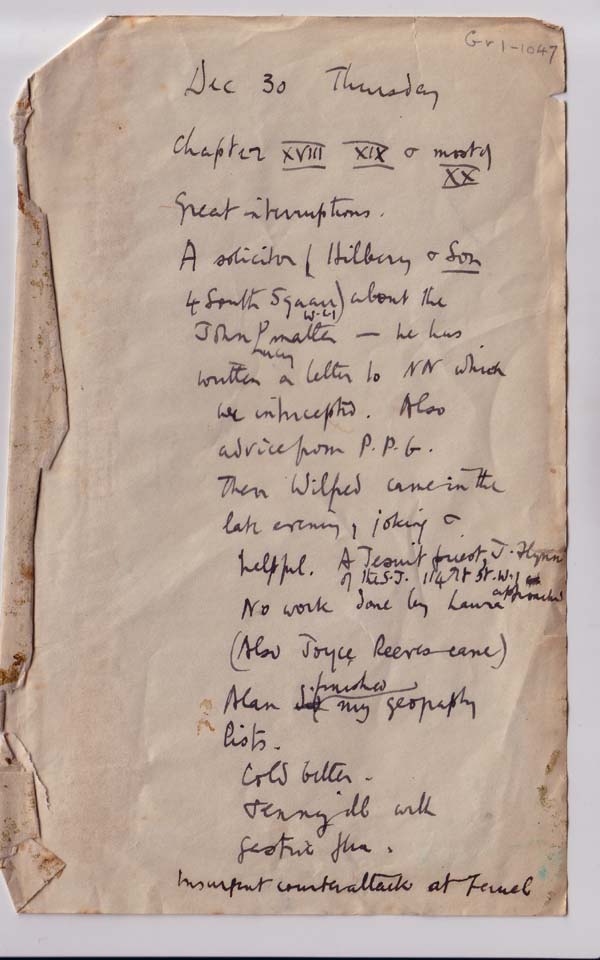 Gr 1-1047
Dec 30 Thursday
Chapter XVIII XIX & most of
XX
Great interruptions.
A solicitor (Hilbery & Son
4 South Square) about the
W.C.1
John matter — he has
Lucy
written a letter to NN which
we intercepted. Also
advice from P.P.G.
Then Wilfred came in the
late evening, joking &
helpful. A Jesuit priest, J. Flynn
of the S.J. 114 St W.1
approached
No work done by Laura
(Also Joyce Reeves came)
finished
Alan my geography
lists.
Cold bitter.
Jenny ill with
gastric flu.
Insurgent counterattack at Teruel